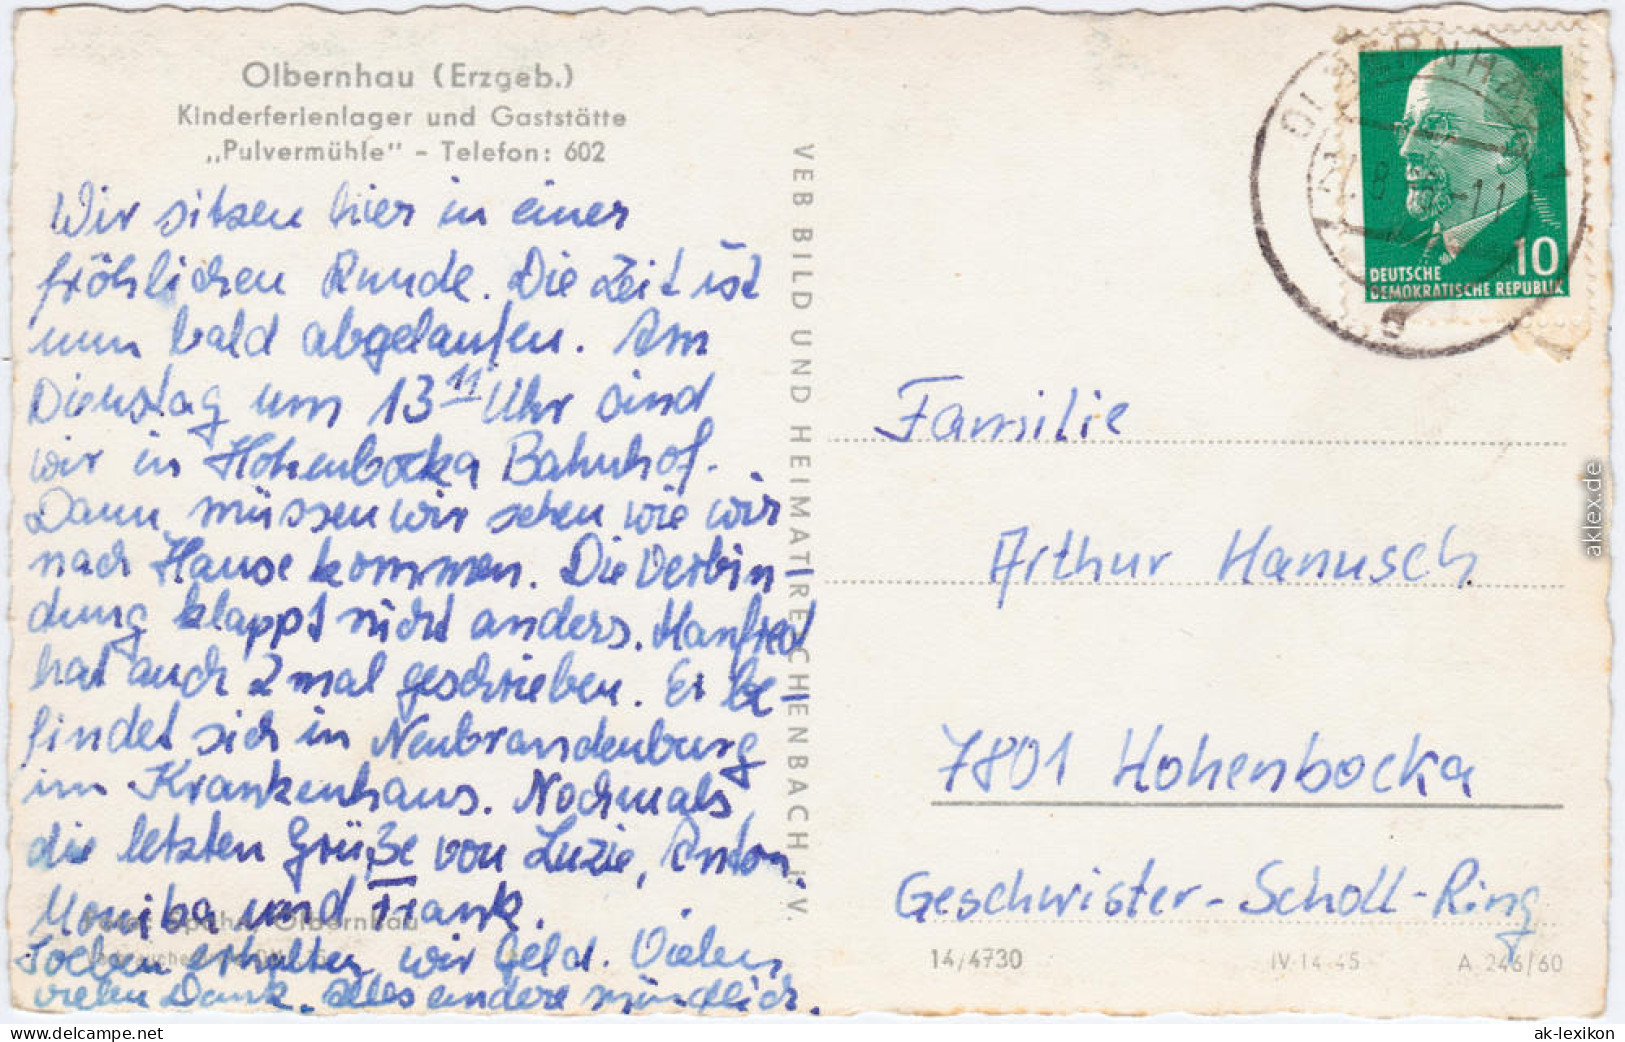 Olbernhau (Erzgeb.)
Kinderferienlager und Gaststätte
„Pulvermühle" - Telefon: 602
Wir sitzen hier in einer
fröhlichen Runde. Die Zeit ist
nun bald abgelaufen. Am
Dienstag um 13 11 Uhr sind
wir in Hohenbocka Bahnhof.
Dann müssen wir sehen wie wir
nach Hause kommen. Die Verbin
dung klappt nicht anders. Manfred
hat auch 2 mal geschrieben. Er be-
findet sich in Neubrandenburg
im Krankenhaus. Nochmals
die letzten Grüße von Luzie, Anton,
Monika und Frank.
Soeben erhalten wir Geld. Vielen
vielen Dank. Alles andere mündlich.
Olbernhau
VEB BILD UND HEIMAT REICHENBACH I. V.
OLBERNHAU 1
10
DEUTSCHE
DEMOKRATISCHE REPUBLIK
Familie
Arthur Hanusch
7801 Hohenbocka
Geschwister-Scholl-Ring
14/4730 IV-14-45 A 246/60
aklex.de
www.delcampe.net
ak-lexikon